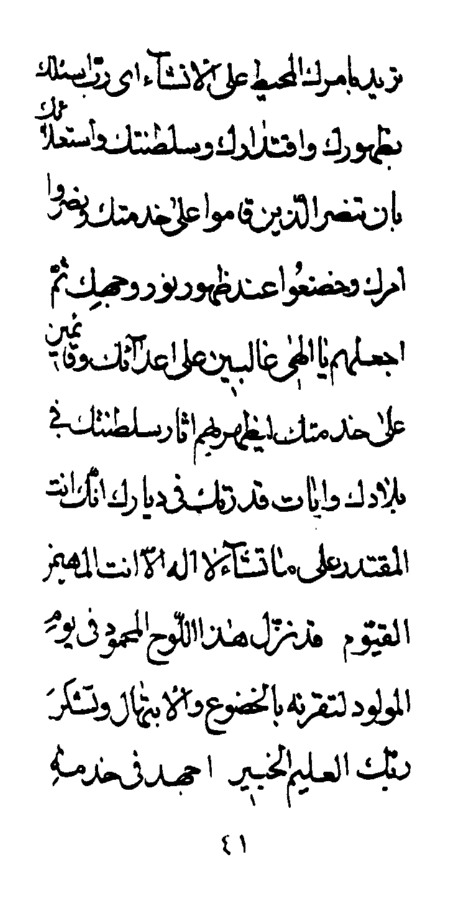 تريد بامرك المحيط على الانشآء اى ربّ اسئلك
بظهورك و اقتدارك و سلطنتك و استعلائك
بان تنصر الّذين قاموا على خدمتك و نصروا
امرك و خضعُوا عند ظهور نور وجهك ثمّ
اجعلهم يا الهى غالبين على اعدآئك و قائمين
على خدمتك ليظهر بهم اثار سلطنتك فى
بلادك و ايات قدرتك فى ديارك انّك انت
المقتدر على ما تشآء لا اله الّا انت المهيمن
القيّوم قد نزّل هذا اللّوح المحمود فى يوم
المولود لتقرئه بالخضوع و الابتهال و تشكرَ
ربّك العليم الخبير اجهد فى خدمة
٤١